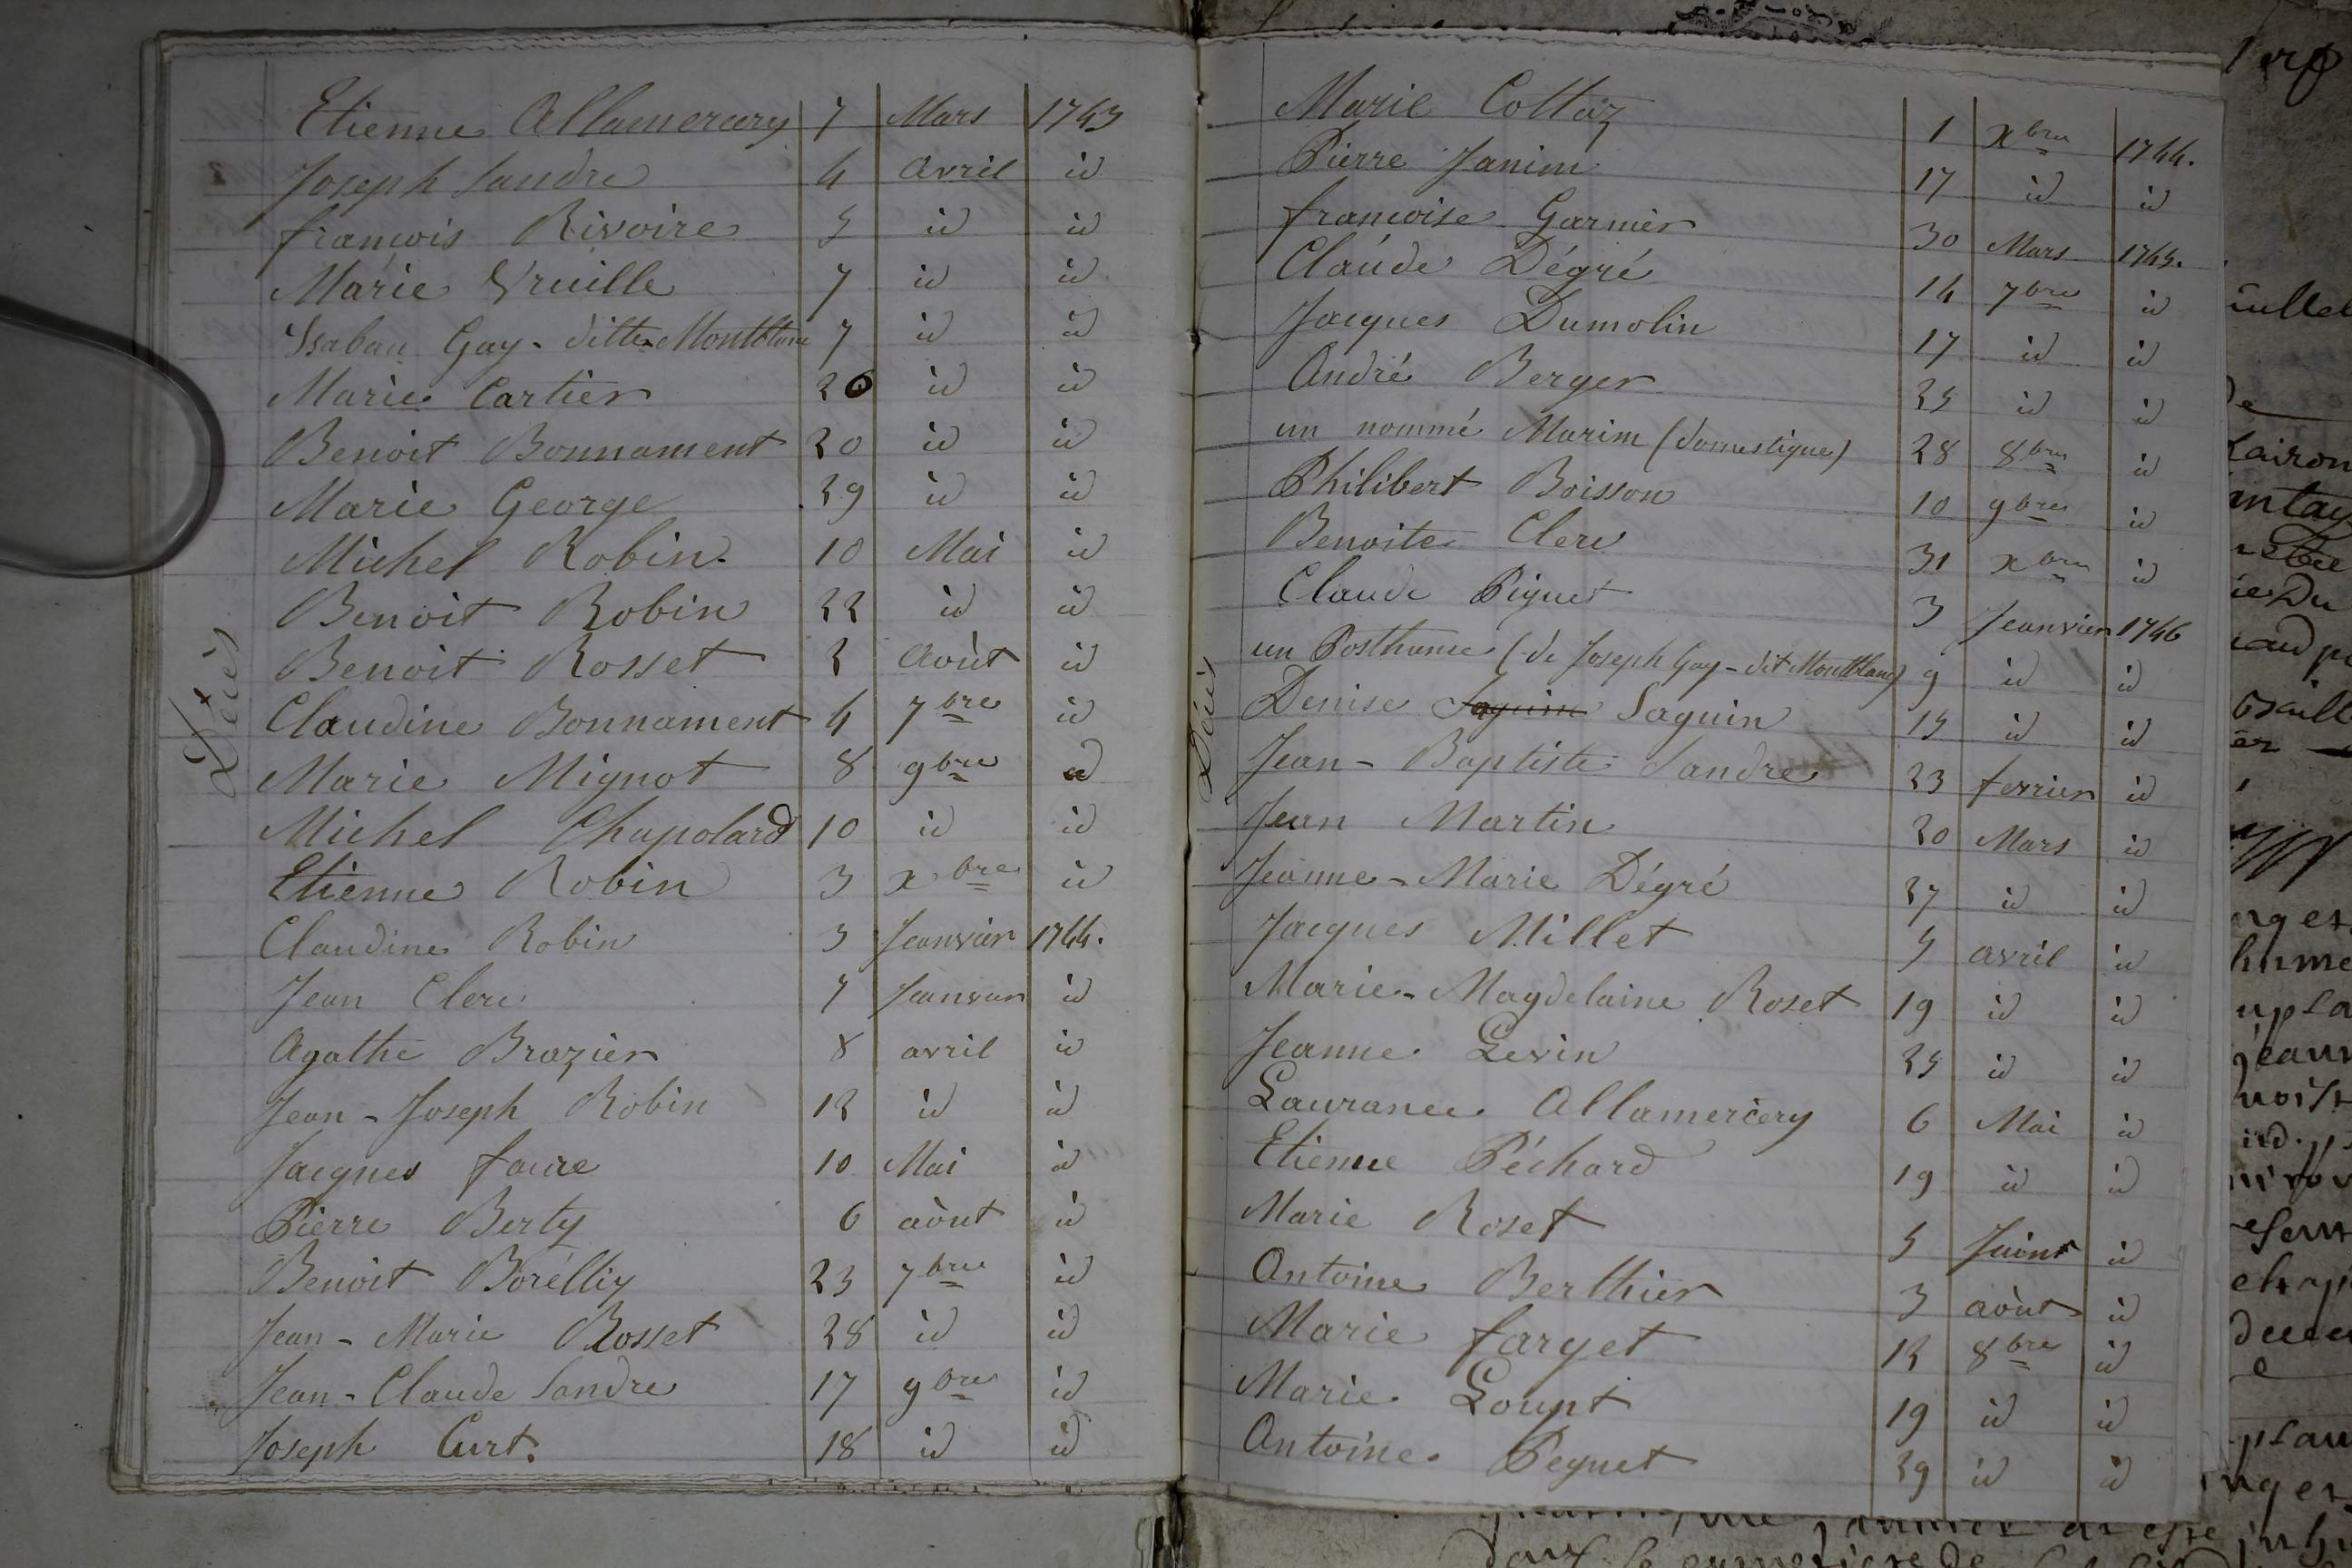 Etienne Allamercery 7 Mars 1743
Joseph Sandre 4 Avril id
françois Rivoire 5 id id
Marie Vruille 7 id id
Ysabau Gay - ditte Montblanc 7 id id
Marie Cartier 20 id id
Benoit Bonnament 20 id id
Marie George 29 id id
Michel Robin 10 Mai id
Benoit Robin 22 id id
Benoit Rosset 2 Août id
Claudine Bonnament 4 7bre id
Marie Mignot 8 9bre id
Michel Chapolard 10 id id
Etienne Robin 3 xbre id
Claudine Robin 3 Jeanvier 1744.
Jean Clerc 7 Jeanvier id
Agathe Brazier 8 avril id
Jean - Joseph Robin 12 id id
Jacques faure 10 Mai id
Pierre Berty 6 août id
Benoit Borélliy 23 7bre id
Jean - Marie Rosset 28 id id
Jean - Claude Sandre 17 9bre id
Joseph Curt. 18 id id
Décès
Marie Cottaz 1 xbre 1744.
Pierre Janim 17 id id
françoise Garnier 30 Mars 1745.
Claude Dégré 14 7bre id
Jacques Dumolin 17 id id
André Berger 25 id id
un nommé Marim (domestique) 28 8bre id
Philibert Boisson 10 9bre id
Benoite Clerc 31 xbre id
Claude Piquet 3 Jeanvier 1746
un Posthume (de Joseph Gay - dit Montblanc) 9 id id
Denise Saguim Saguin 15 id id
Jean - Baptiste Sandre 23 fevrier id
Jean Martin 20 Mars id
Jeanne - Marie Dégré 27 id id
Jacques Millet 5 avril id
Marie - Magdelaine Roset 19 id id
Jeanne Levin 25 id id
Laurance Allamercery 6 Mai id
Etienne Péchard 19 id id
Marie Roset 5 Juin id
Antoine Berthier 3 août id
Marie farget 12 8bre id
Marie Loupt 19 id id
Antoine Peguet 29 id id
Décès